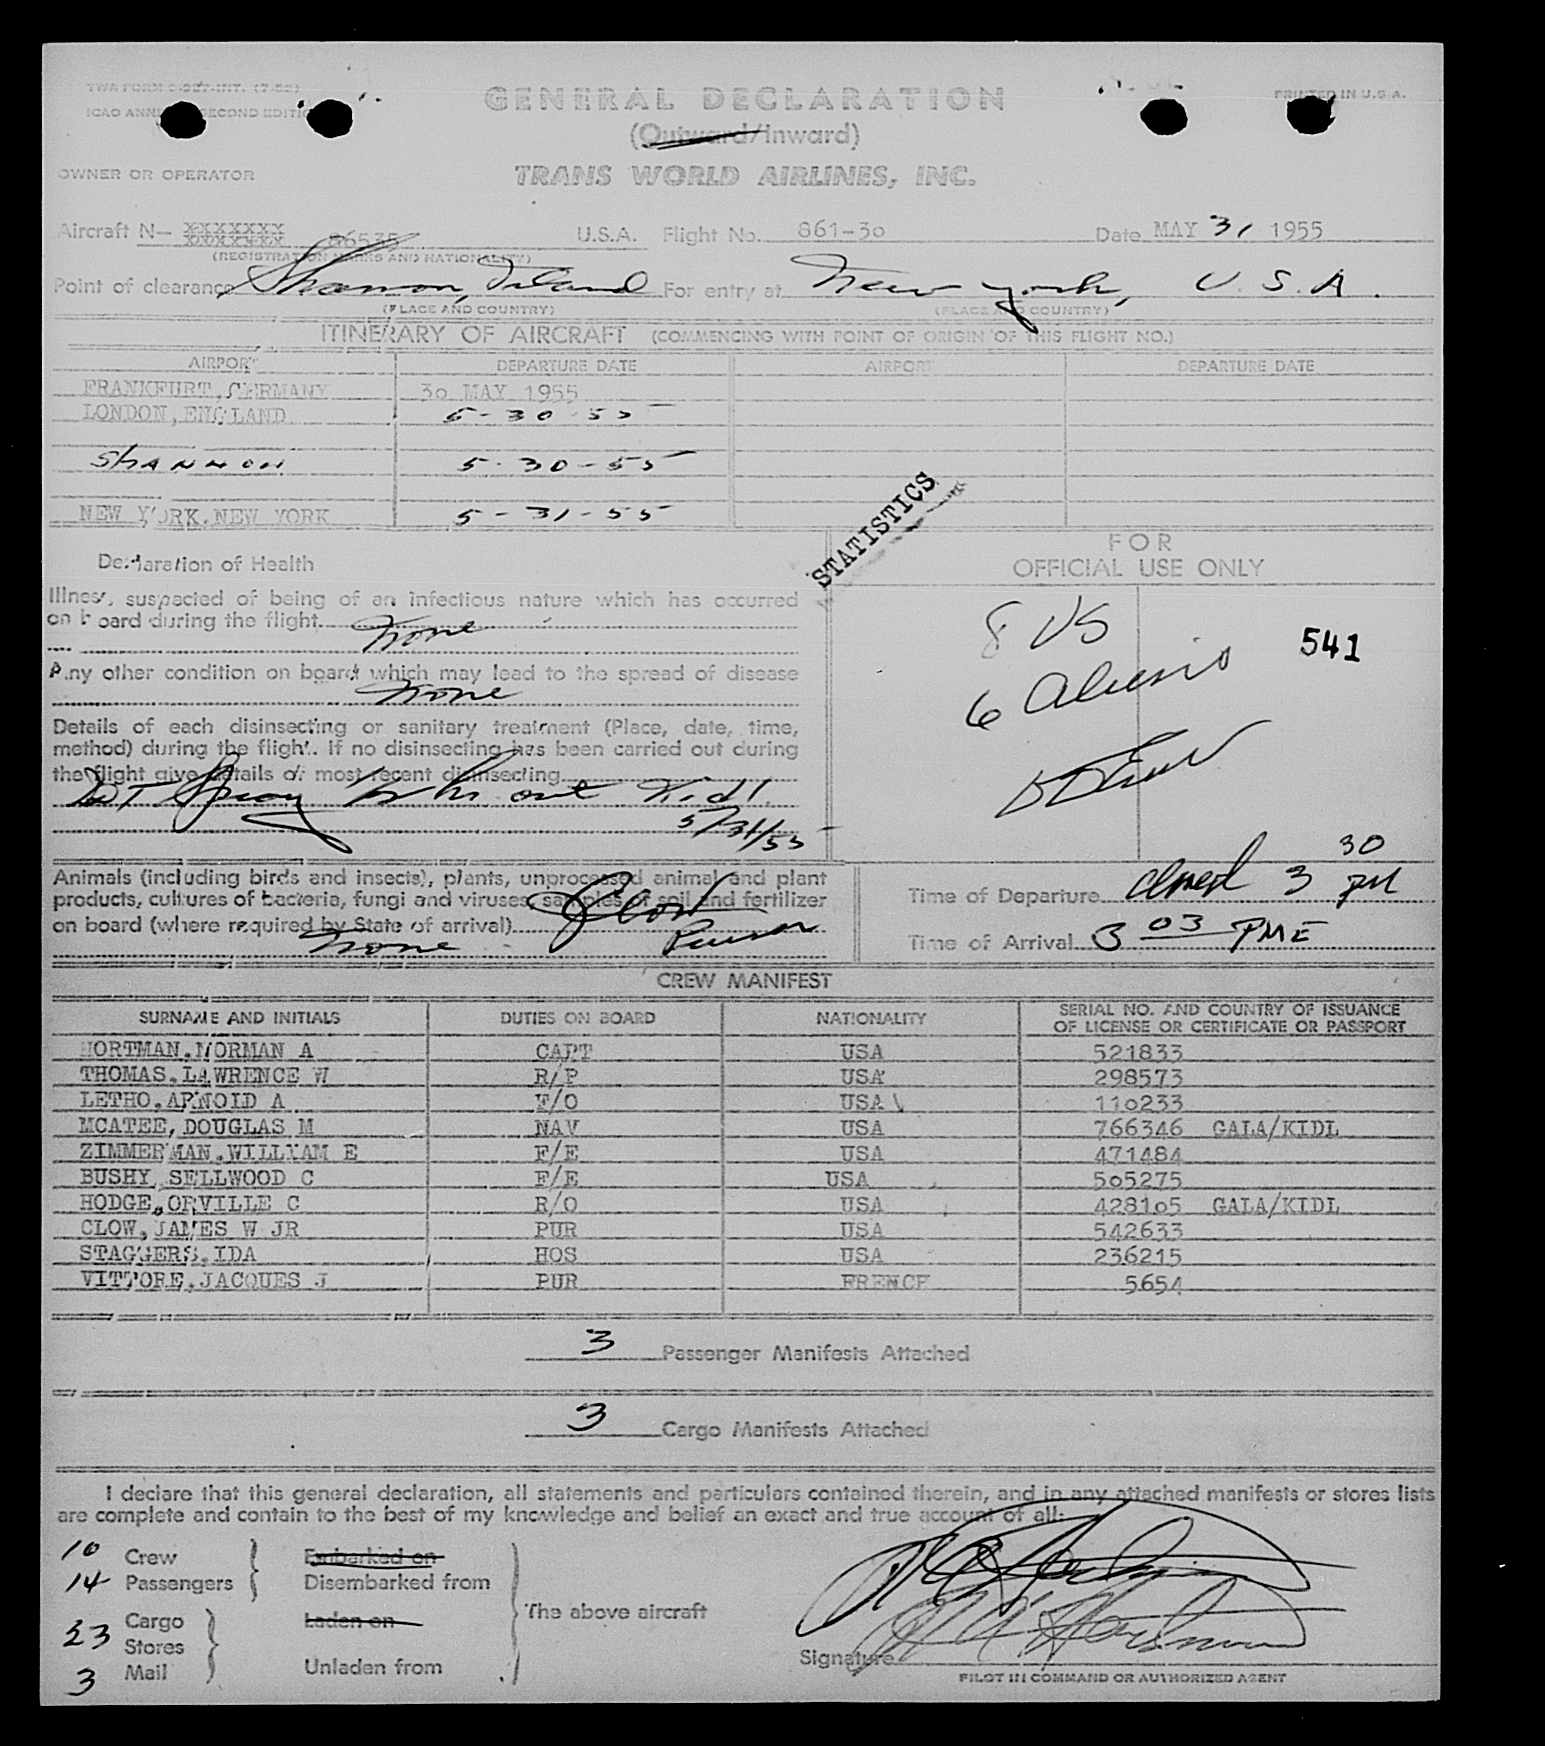 TWA FORM
PRINTED IN U.S.A.
GENERAL DECLARATION
ICAO ANNEX SECOND EDITION
(Outward/Inward)
OWNER OR OPERATOR
TRANS WORLD AIRLINES, INC.
Aircraft N— XXXXXXX 86535 U.S.A. Flight No. 861-30 Date MAY 31 1955
(REGISTRATION MARKS AND NATIONALITY)
Point of clearance Shannon, Ireland For entry at New York, U.S.A.
(PLACE AND COUNTRY) (PLACE AND COUNTRY)
ITINERARY OF AIRCRAFT (COMMENCING WITH POINT OF ORIGIN OF THIS FLIGHT NO.)
AIRPORT DEPARTURE DATE AIRPORT DEPARTURE DATE
FRANKFURT, GERMANY 30 MAY 1955
LONDON, ENGLAND 5-30-55
SHANNON 5-30-55
NEW YORK, NEW YORK 5-31-55
STATISTICS
Declaration of Health
Illness, suspected of being of an infectious nature which has occurred
on board during the flight None
Any other condition on board which may lead to the spread of disease
None
Details of each disinsecting or sanitary treatment (Place, date, time,
method) during the flight. If no disinsecting has been carried out during
the flight give details of most recent disinsecting
DDT Spray ½ hr out Kidl.
5/31/55
FOR
OFFICIAL USE ONLY
8 US
6 Aliens
541
Animals (including birds and insects), plants, unprocessed animal and plant
products, cultures of bacteria, fungi and viruses, samples of soil and fertilizer
on board (where required by State of arrival)
None
J Clow
Purser
Time of Departure closed 3 30 PM
Time of Arrival 3 03 PME
CREW MANIFEST
SURNAME AND INITIALS DUTIES ON BOARD NATIONALITY SERIAL NO. AND COUNTRY OF ISSUANCE
OF LICENSE OR CERTIFICATE OR PASSPORT
HORTMAN, NORMAN A CAPT USA 521833
THOMAS, LAWRENCE W R/P USA 298573
LETHO, ARNOLD A F/O USA 110233
MCATEE, DOUGLAS M NAV USA 766346 GALA/KIDL
ZIMMERMAN, WILLIAM E F/E USA 471484
BUSHY, SELLWOOD C F/E USA 505275
HODGE, ORVILLE C R/O USA 428105 GALA/KIDL
CLOW, JAMES W JR PUR USA 542633
STAGGERS, IDA HOS USA 236215
VITTORE, JACQUES J PUR FRENCH 5654
3 Passenger Manifests Attached
3 Cargo Manifests Attached
I declare that this general declaration, all statements and particulars contained therein, and in any attached manifests or stores lists
are complete and contain to the best of my knowledge and belief an exact and true account of all:
10 Crew Embarked on
14 Passengers Disembarked from
The above aircraft
23 Cargo Laden on
Stores
3 Mail Unladen from
Signature
PILOT IN COMMAND OR AUTHORIZED AGENT